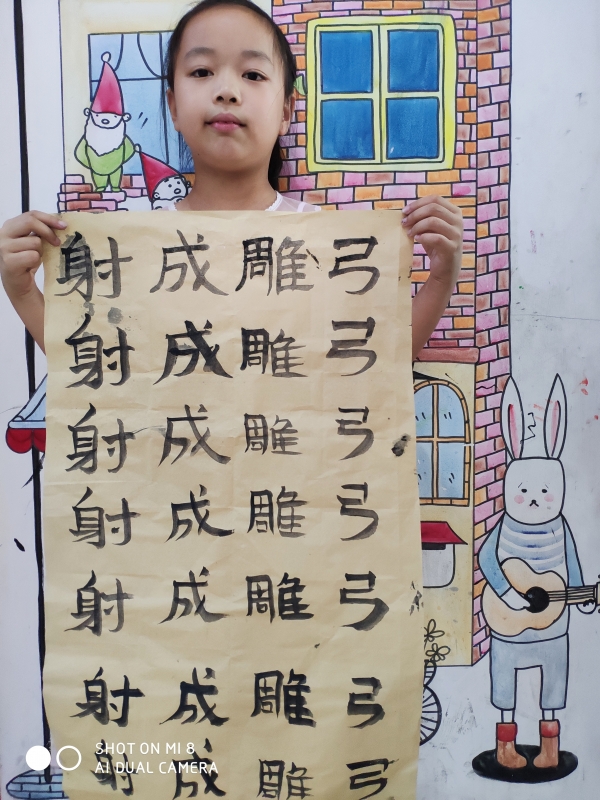 射成雕弓
射成雕弓
射成雕弓
射成雕弓
射成雕弓
射成雕弓
射成雕弓
SHOT ON MI 8
AI DUAL CAMERA